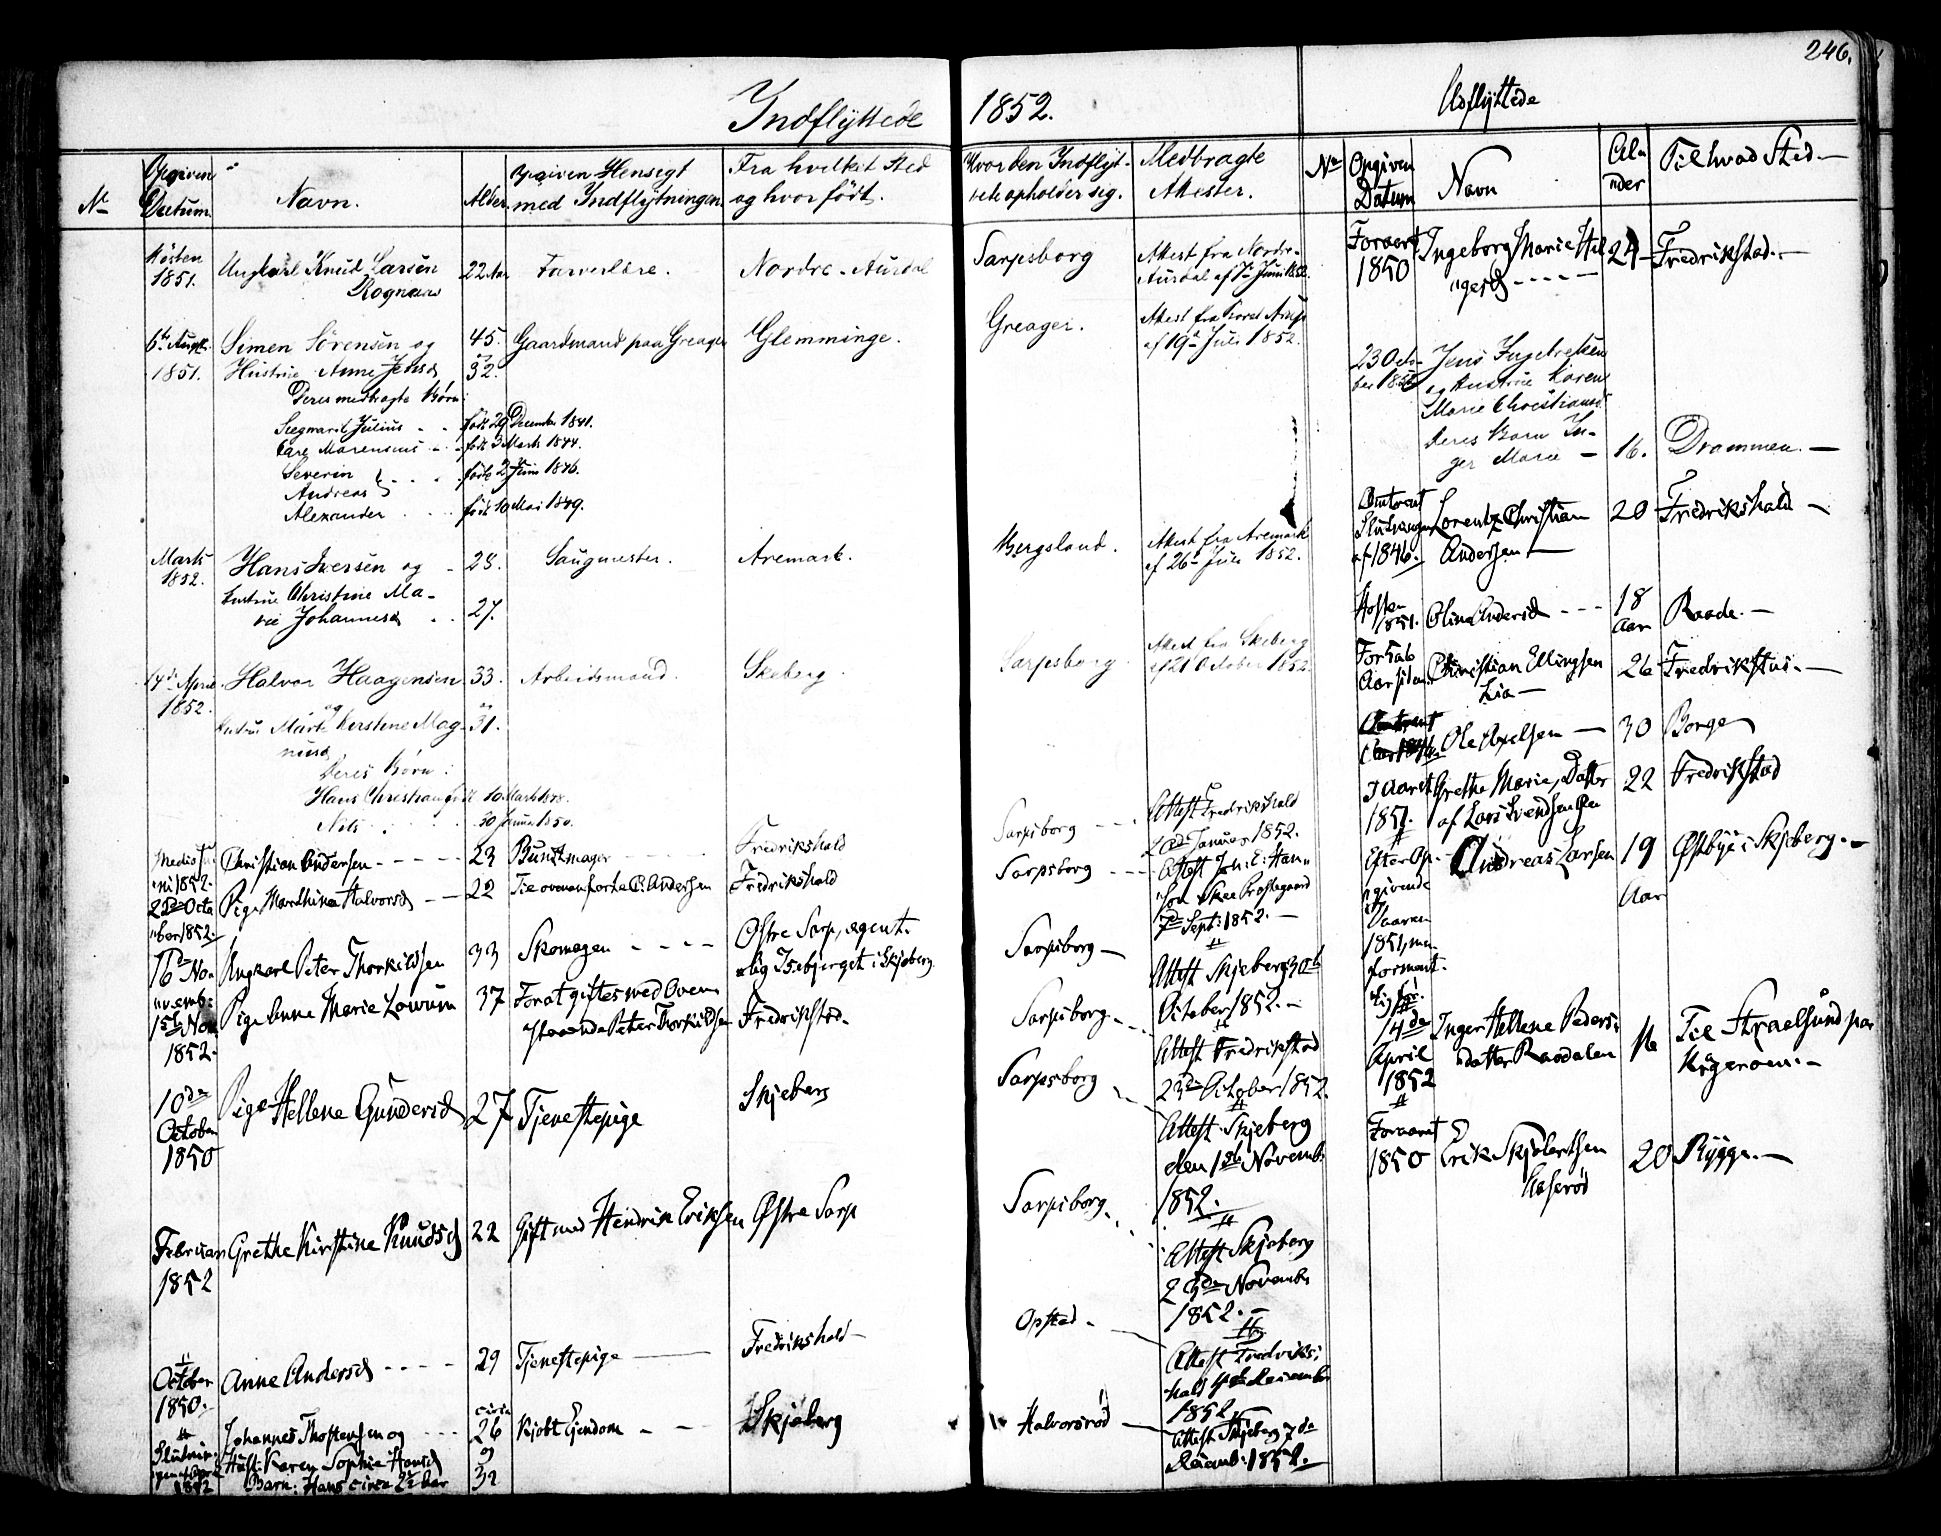 246.
Indflyttede 1852.
Udflyttede
No
Opgiven Datum
Navn.
Alder.
Opgiven Hensigt med Indflytningen
Fra hvilket Sted og hvor født.
Hvor den Indflyttede opholder sig.
Medbragte Attester.
No
Opgiven Datum
Navn
Alder
Til hvad Sted
Høsten 1851.
Ungkarl Knud Larsen
22 Aar
Farverlære.
Nordre-Aurdal
Sarpsborg
Attest fra Nordre-
Aurdal af 7de Juni 1852.
6te August
1851.
Simen Sørensen og
Hustrue Anne Jensd
Deres medbragte Børn:
45.
og
32.
Gaardmand paa Greager
Glemminge.
Greager.
af 19de Juli 1852.
Julius - - født 29 December 1841.
Marensius - - født 3 Marts 1844.
Severin
Andreas } - - født 2 Juni 1846.
Alexander - - født 10 Mai 1849.
Marts
1852.
Hans Iversen og -
Hustrue Christine Ma-
rie Johannesd - -
28.
27.
Saugmester.
Aremark.
Bergsland.
Attest fra Aremark
af 26de Juli 1852.
14de April
1852.
Halvor Haagensen
og
Hustru Marte Kerstine Mag-
nusd
33.
og
31.
Arbeidsmand.
Skeberg.
Sarpsborg.
Attest fra Skeberg
af 21 October 1852
Deres Børn:
Hans Christian født 10 Marts 1848.
Nils - - 30 Januar 1850.
Medio Ju-
ni 1852.
Christian Andersen - - - -
23
Buntmager
Fredrikshald
Sarpsborg - - -
Attest Fredrikshald
Januar 1852.
22de Octo
ber 1852.
Pige Marthine Halvorsd - -
22
Til ovenanførte C. Andersen
Fredrikshald
Sarpsborg - - -
7de Sept: 1852. -
16de No-
vemb:
Ungkarl Peter Thorkildsen
33
Skomager - - - -
Østre Sarp, egent-
lig Isebjerget i Skjeberg
Sarpsborg -
Attest Skjeberg 30th
October 1852. -
15de Nov
1852.
Pige Anne Marie Lowum
37
For at giftes med Oven-
staaende Peter Thorkildsen
Fredrikstad.
Sarpsborg. - -
Attest Fredrikstad
23de October 1852.
10de
October
1850
Pige Hellene Gundersd
27
Tjenestepige
Skjeberg
Sarpsborg
Attest Skjeberg
den 1ste Novemb:
1852.
Februar
1852
Grethe Kirstine Knudsd
22
Gift med Hendrik Eriksen
Østre Sarp
Sarpsborg.
Attest Skjeberg
23de Novemb:
1852. -
October
1850.
Anne Andersd - - - -
29
Tjenestepige
Fredrikshald -
Opstad -
Attest Fredriks-
hald 4de December
1852
Slutnin-
gen af April
1852
Johannes Thostensen og - - -
Hust: Karen Sophie Hansd
Barn: Hans circa 2½ Aar
circa
26
og
32
Kjøbt Eiendom - -
Skjeberg
Halvorsrød
Attest Skjeberg 7de
Decemb: 1852.
Foraaret
1850
Ingeborg Marie Hel
"gesd - - - -
24
Fredrikstad. -
23 Octo-
ber
Jens Ingebretsen
og Hustrue Karen
Marie Christiansd
Deres Barn In-
ger Marie -
16.
Drammen. -
Omtrent
Slutningen
af 1846.
Lorentz Christian
Andersen -
20
Fredrikshald -
Høsten
1851.
Oline Andersd - - -
18
Aar
Raade. -
Aar siden
Christian Ellingsen
Lia -
26
Fredrikstad. -
Ole Axelsen -
30
Borge
I Aaret
1851.
Grethe Marie, Datter
af Lars Svendsen
22
Fredrikstad
Efter Op-
givende
i Vaaren
1851, men
forment-
lig før.
Andreas Larsen
19
Aar
Østbye i Skjeberg. -
14de
April
1852
Inger Hellene Peders-
datter Raadalen
16
Til Straelsund paa
Kragerøen. -
Foraaret
1850
Erik Skjølertsen
Haserød
20
Rygge. -